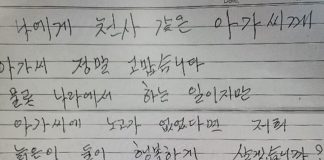 나에게 천사 같은 아가씨께
아가씨 정말 고맙습니다
물론 나라에서 하는 일이지만
아가씨에 노고가 없었다면 저희
늙은이 들이 행복하게 살겠습니까?